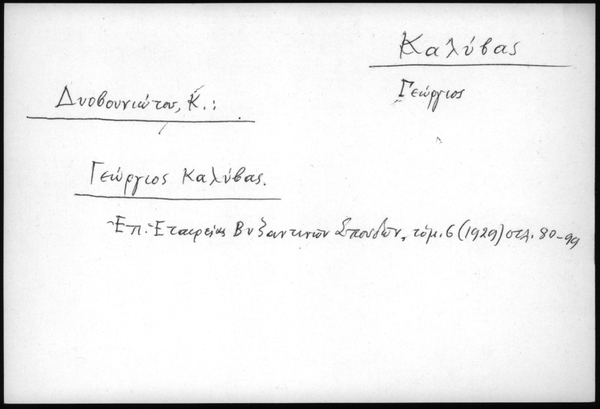 Καλύβας
Γεώργιος
Δυοβουνιώτου, Κ.:
Γεώργιος Καλύβας.
Ἐπ. Ἑταιρείας Βυζαντινῶν Σπουδῶν, τόμ. 6 (1929) σελ. 80-99